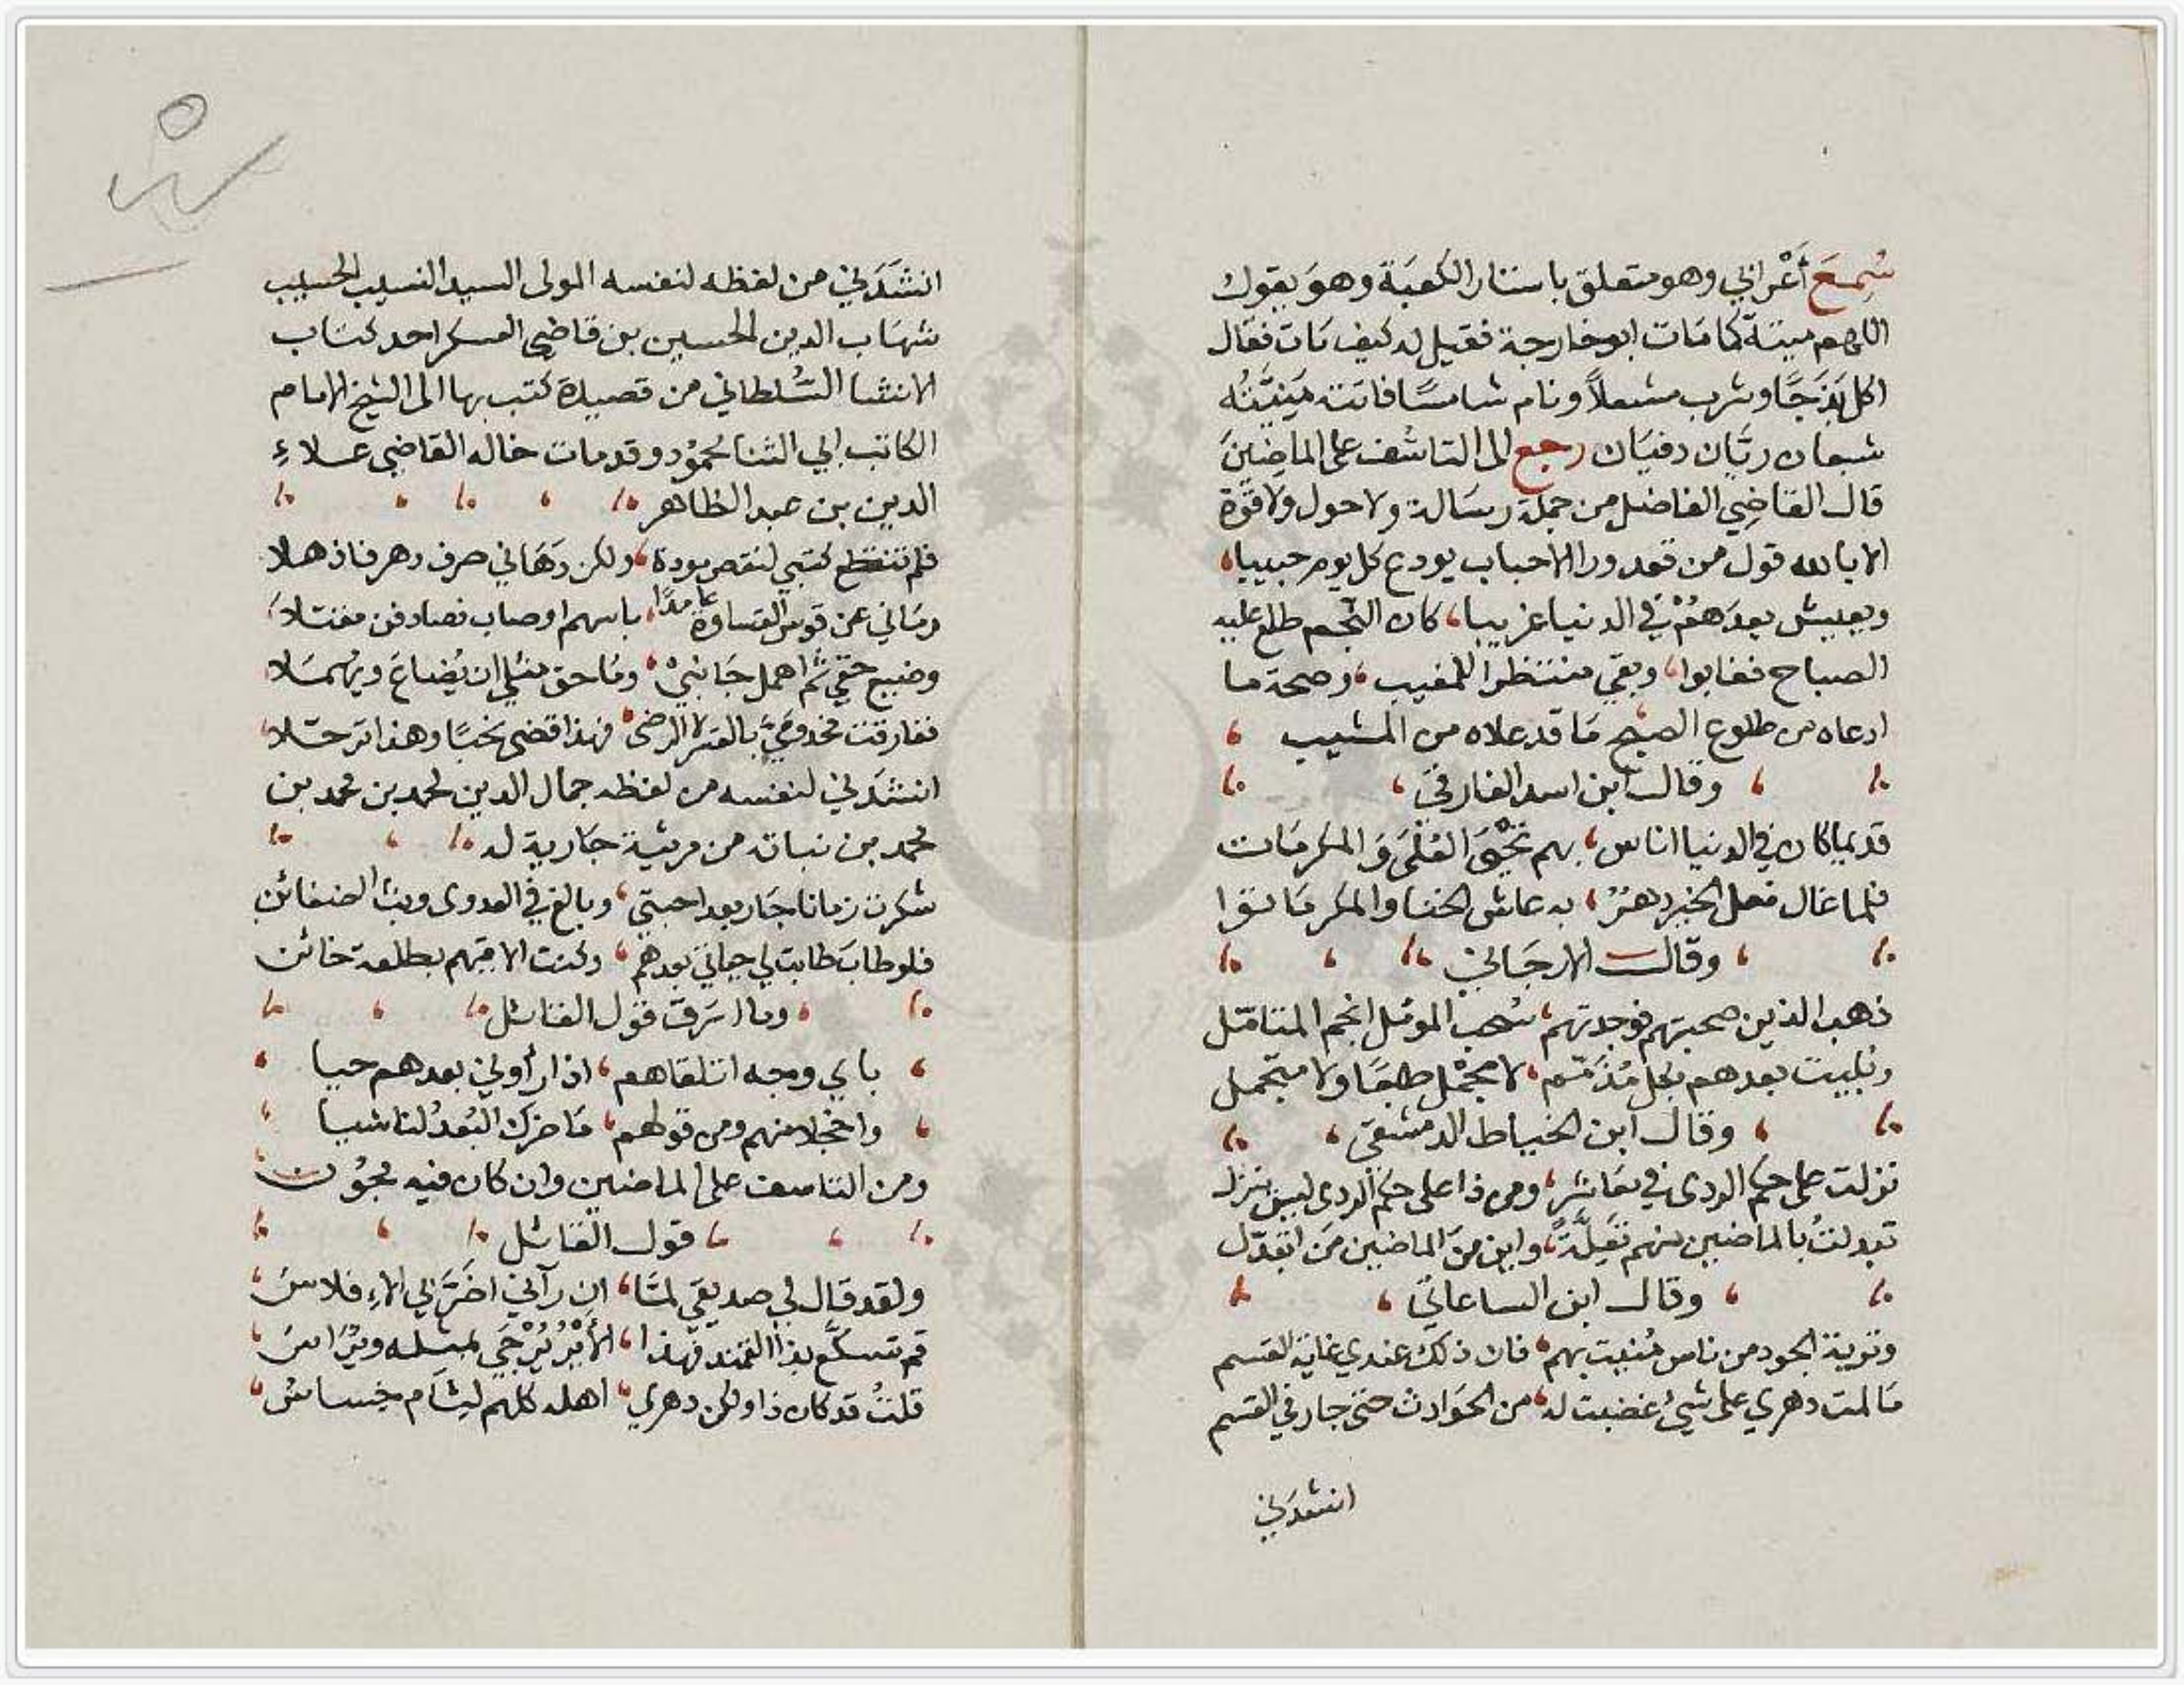 سُمِعَ أَعْرابي وهو متعلق باستار الكعبَة وهوَ يقول
اللهم ميتة كما مَات ابو خارجة فقيل له كيف مَات فقال
اكل بَذَجًا وشرب مشعلاً ونام شامسًا فاتته مَنِيَّتُه
شبعان ريّان دفيَان رجع الى التاسُّف على الماضِينَ
قال القاضِي الفاضل من جملة رسَالة ولا حول ولا قوّة
الا بالله قول من قعد ورا الاحباب يودع كل يوم حبيبا،
ويعيش بعدَهُمْ في الدنيا غريبا، كان النجم طلع عليه
الصباح فغابوا، وبقي منتظرا للمغيب، وصحة ما
ادعاه من طلوع الصبح مَا قد علاه من المشيب ،
وقال ابن اسد الفارقي ،
قديما كان في الدنيا اناس، بهم تَحْيَى العُلَى وَالمكرمَات
فلما غال فعل الخير دهرٌ، به عاش الخنا والمكر مَاتوا
وقال الارجَاني
ذهب الذين صحبتهم فوجدتهم، سُحب المؤمّل انجم المتأمّل
وبُليت بعدهم بكل مُذَمّم، لا مُجْمِل طبعًا ولا متجمل
وقال ابن الخياط الدمشقي ،
نزلت على حكم الردى في معَاشرٍ، ومن ذا على حكم الردى ليس ينزل
تبدلتُ بالماضين منهم تَعِلَّةً، واين منَ الماضين مَن اتبدّل
وقال ابن الساعاتي ،
وتوبة الجود من ناس مُنيت بهم، فان ذلك عندي غاية القسم
مَا لمت دهري على شيءٍ غضبت له، من الحَوادث حتى جار في القسم
انشدَني
انشَدَني من لفظه لنفسه المولى السيد النسيب الحسيب
شهَاب الدين الحسين بن قاضي العسكر احد كتاب
الانشا السُّلطاني من قصيدة كتب بها الى الشيخ الامام
الكاتب ابي الثنا محمُود وقد مات خاله القاضي علاءِ
الدين بن عبد الظاهر
فلم تنقطع كتبي لنقص مودة، ولكن دَهَاني صرف دهر فاذهلا
ورمَاني عن قوس القساوة عامدًا، باسهم اوصاب فصادفن مقتلا،
وضيع حقي ثم اهمل جَانبيْ، ومَا حق مثلي ان يُضاعَ ويهمَلا
ففارقت مخدومَيَّ بالقسر لا الرضى، فهذا قضى نحبًا وهذا ترحّلا،
انشدَني لنفسه من لفظه جمال الدين محمد بن محمد بن
محمد بن نباته من مرثية جَارية له
شكرت زمانا جَار بعد احبتي، وبالغ في العدوى وبث الضغائن
فلو طابَ طابت لي حياتي بعدهم، وكنت الاقيهم بطلعة خائن
، وما ارَقّ قول القائل
، باي وجه اتلقاهم، اذا رأوني بعدهم حيا ،
، واخجلا منهم ومن قولهم، مَا ضرك البُعدُ لنا شيا ،
ومن التاسف على الماضين وان كان فيه مجُون
قول القائل
ولقد قال لي صديقي لمَّا، ان رآني اضَرَّ بي الافلاسُ،
قم تسلّع بذا القمد فهذا، الأيْرُ يُرْجَي لمثله ويُرَاسُ،
قلتُ قد كان ذا ولكن دهري، اهله كلهم لئام خساسُ،